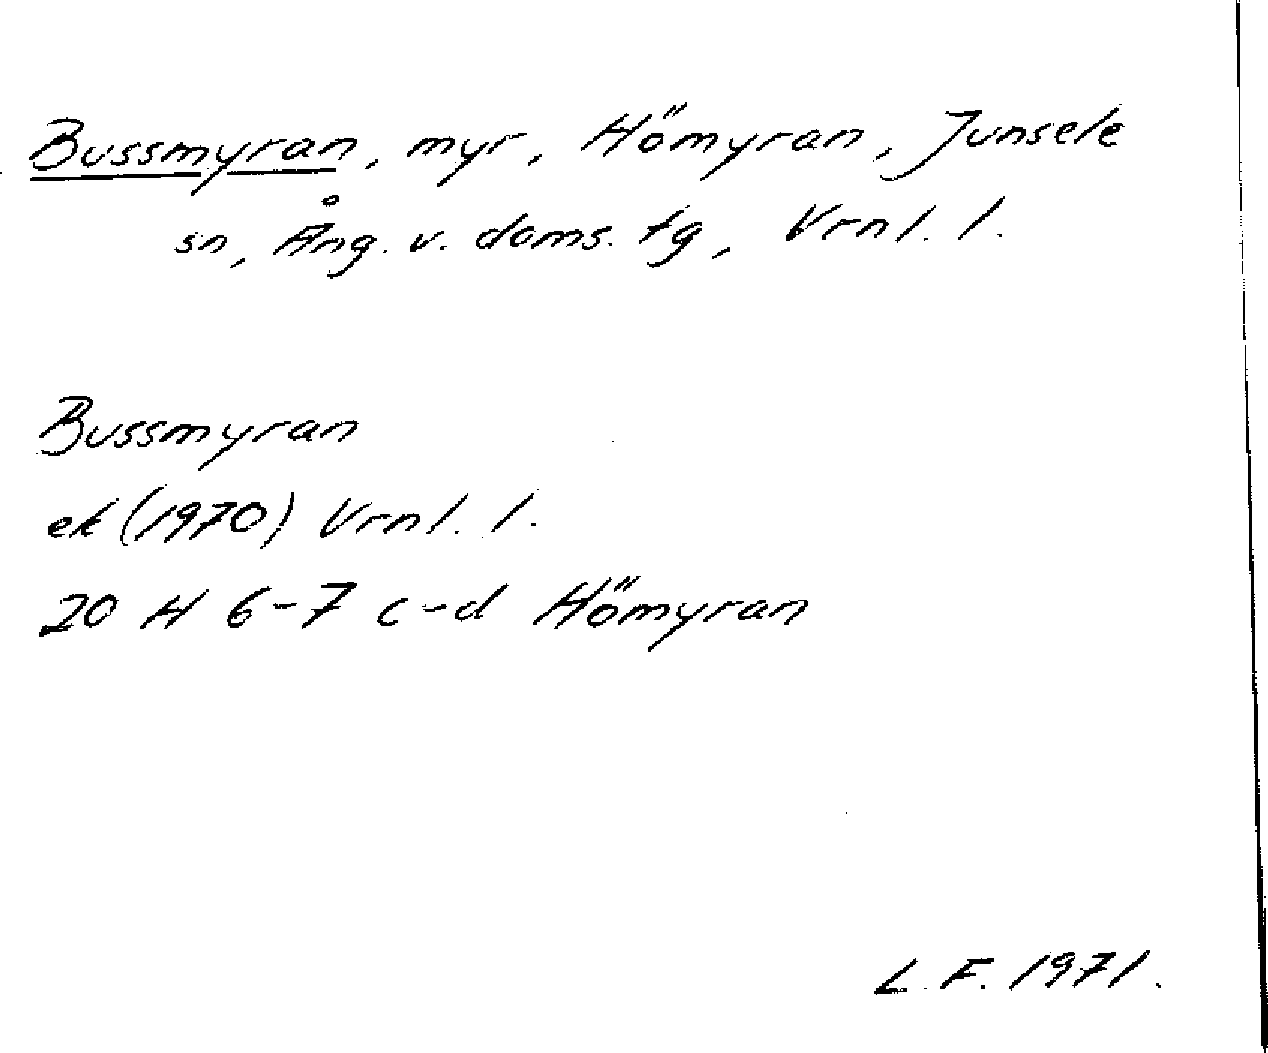 Bussmyran, myr, Hömyran, Junsele
sn, Ång. v. doms. tg, Vrnl. l.
Bussmyran
ek (1970) Vrnl. l.
20 H 6-7 c-d Hömyran
L. F. 1971.